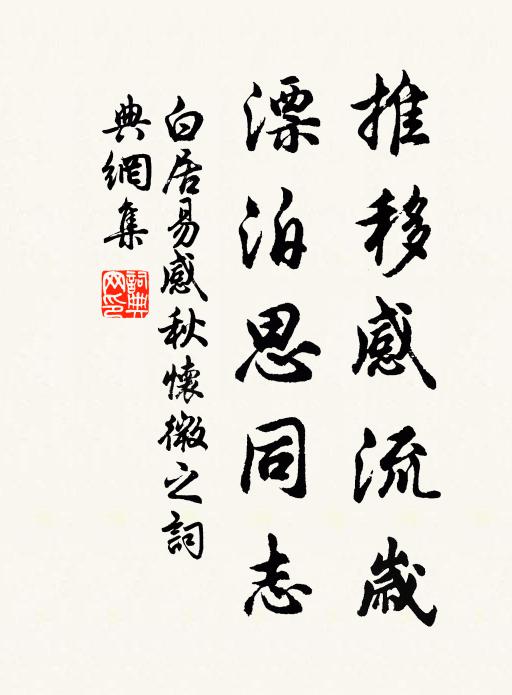 推移感流歲
漂泊思同志
白居易感秋懷微之詞
典網集
詞典网印